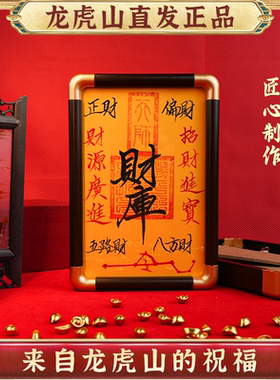 龙虎山直发正品
匠心制作
正財
偏財
財源廣進
招財進寶
財庫
五路財
八方財
来自龙虎山的祝福